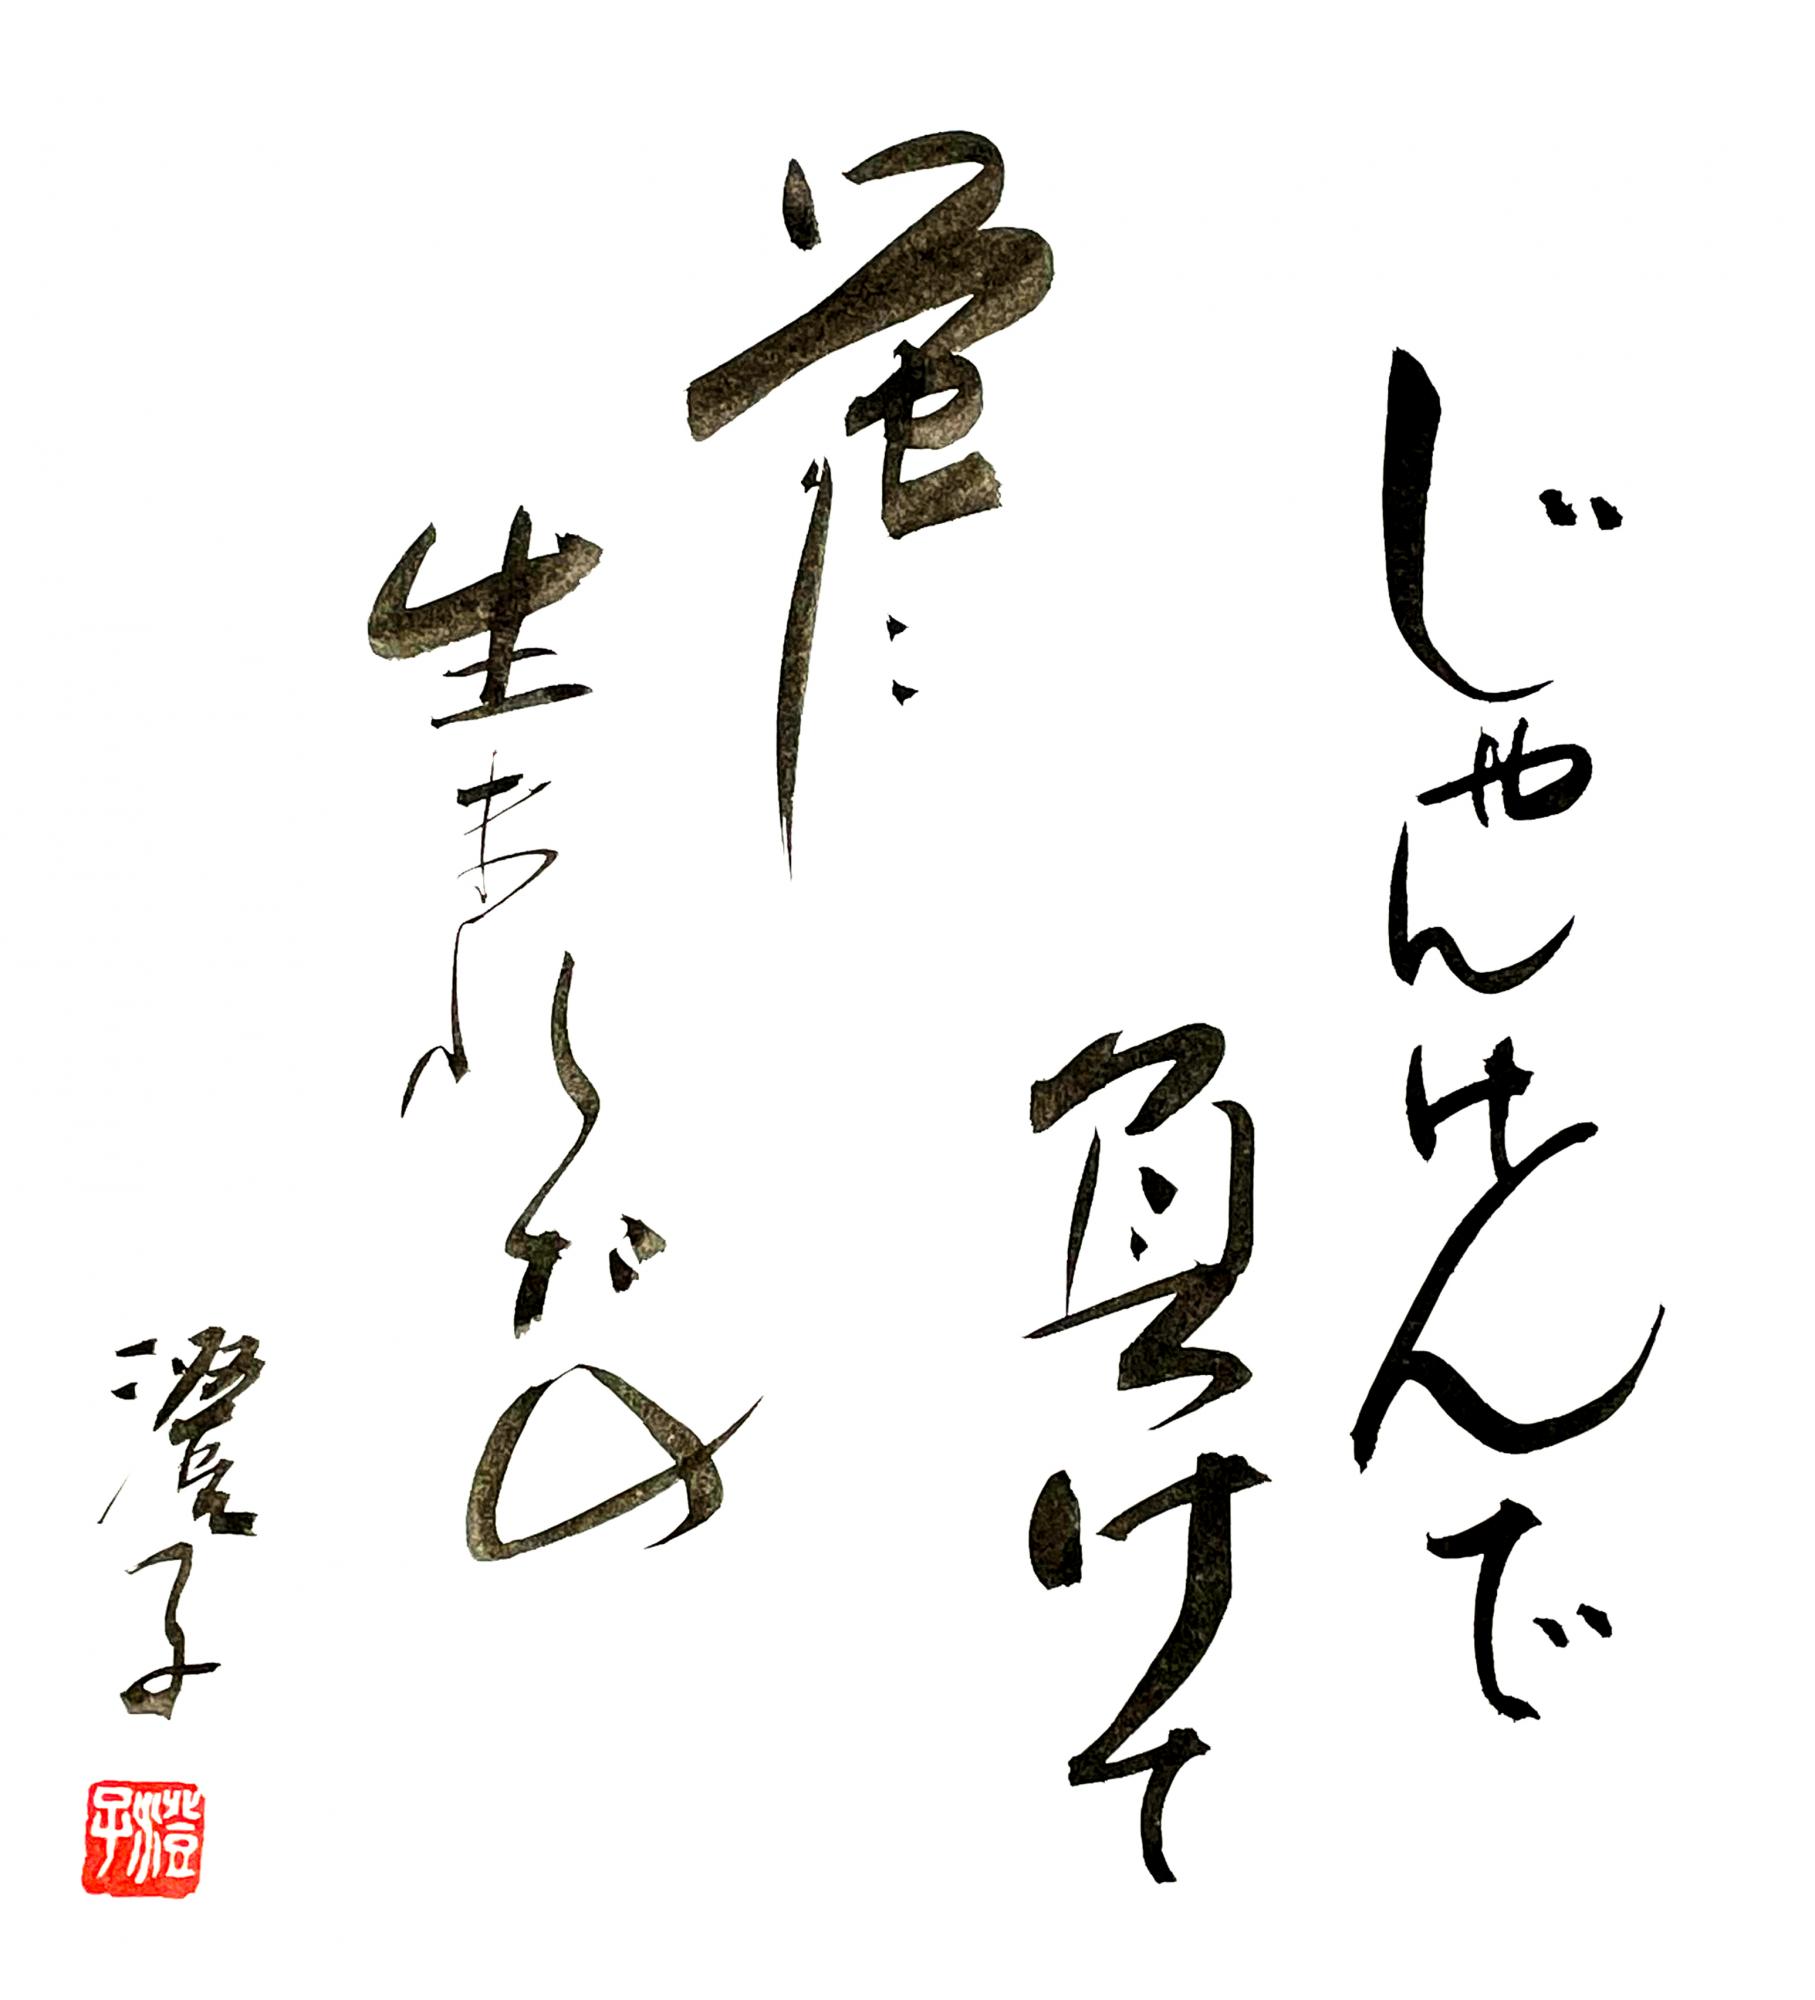 じゃんけんで
負けて
蛍に
生まれたの
澄子
澄子